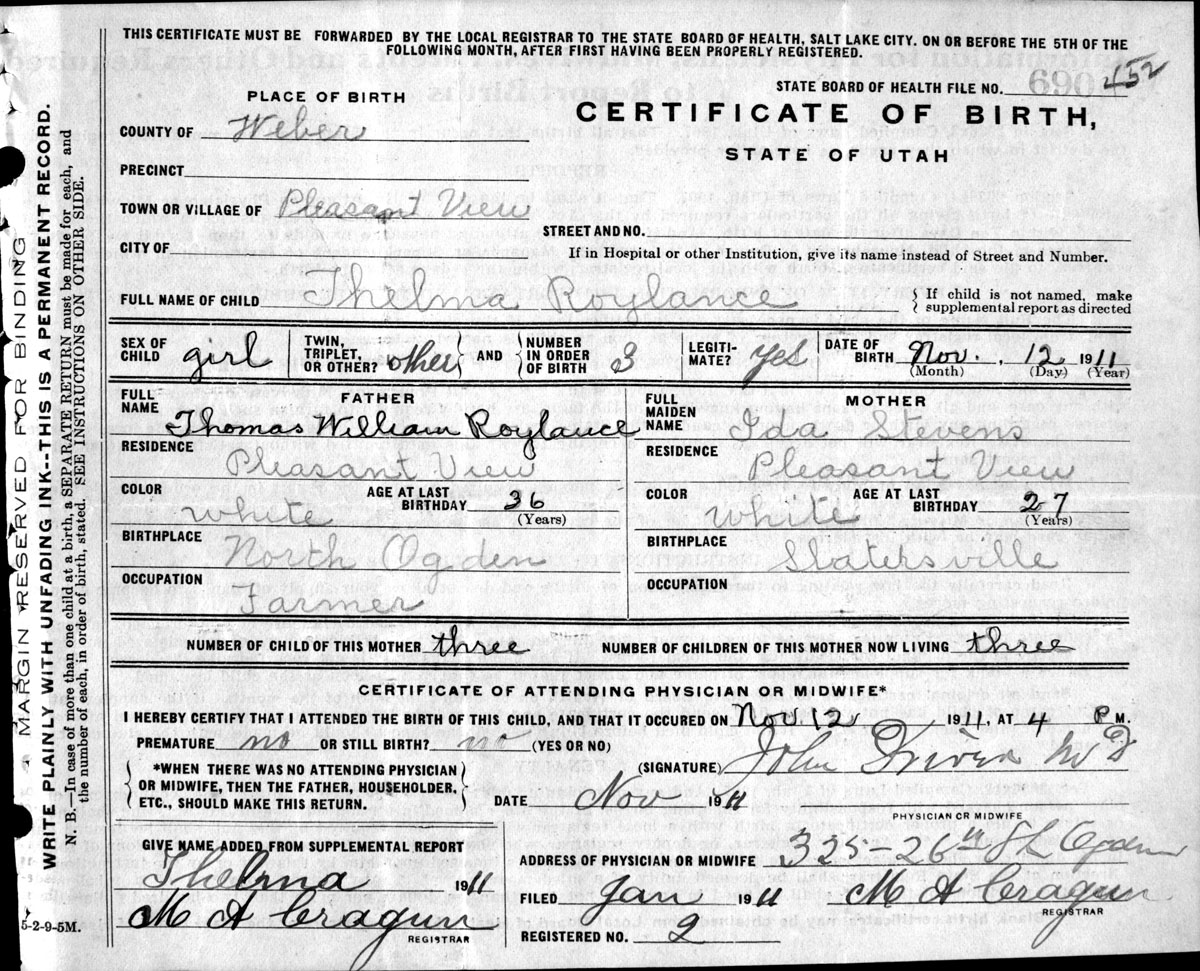 THIS CERTIFICATE MUST BE FORWARDED BY THE LOCAL REGISTRAR TO THE STATE BOARD OF HEALTH, SALT LAKE CITY. ON OR BEFORE THE 5TH OF THE
FOLLOWING MONTH, AFTER FIRST HAVING BEEN PROPERLY REGISTERED.
STATE BOARD OF HEALTH FILE NO. 452
PLACE OF BIRTH
CERTIFICATE OF BIRTH,
STATE OF UTAH
COUNTY OF Weber
PRECINCT
TOWN OR VILLAGE OF Pleasant View
STREET AND NO.
CITY OF
If in Hospital or other Institution, give its name instead of Street and Number.
FULL NAME OF CHILD Thelma Roylance
If child is not named, make
supplemental report as directed
SEX OF CHILD girl
TWIN, TRIPLET, OR OTHER? other AND NUMBER IN ORDER OF BIRTH 3
LEGITI-MATE? Yes
DATE OF BIRTH Nov. 12 1911
(Month) (Day) (Year)
FATHER
FULL NAME Thomas William Roylance
RESIDENCE
Pleasant View
COLOR white AGE AT LAST BIRTHDAY 36
(Years)
BIRTHPLACE North Ogden
OCCUPATION
Farmer
MOTHER
FULL MAIDEN NAME Ida Stevens
RESIDENCE
Pleasant View
COLOR white AGE AT LAST BIRTHDAY 27
(Years)
BIRTHPLACE Slatersville
OCCUPATION
NUMBER OF CHILD OF THIS MOTHER three NUMBER OF CHILDREN OF THIS MOTHER NOW LIVING three
CERTIFICATE OF ATTENDING PHYSICIAN OR MIDWIFE*
I HEREBY CERTIFY THAT I ATTENDED THE BIRTH OF THIS CHILD, AND THAT IT OCCURED ON Nov. 12, 1911, AT 4 P M.
PREMATURE no OR STILL BIRTH? no (YES OR NO)
*WHEN THERE WAS NO ATTENDING PHYSICIAN
OR MIDWIFE, THEN THE FATHER, HOUSEHOLDER,
ETC., SHOULD MAKE THIS RETURN.
(SIGNATURE) John
DATE Nov 1911
PHYSICIAN OR MIDWIFE
ADDRESS OF PHYSICIAN OR MIDWIFE 325-26th St Ogden
GIVE NAME ADDED FROM SUPPLEMENTAL REPORT
Thelma 1911
M A Cragun
REGISTRAR
FILED Jan 1911 M A Cragun
REGISTRAR
REGISTERED NO. 2
5-2-9-5M.
MARGIN RESERVED FOR BINDING
WRITE PLAINLY WITH UNFADING INK--THIS IS A PERMANENT RECORD.
N. B.—In case of more than one child at a birth, a SEPARATE RETURN must be made for each, and
the number of each, in order of birth, stated. SEE INSTRUCTIONS ON OTHER SIDE.